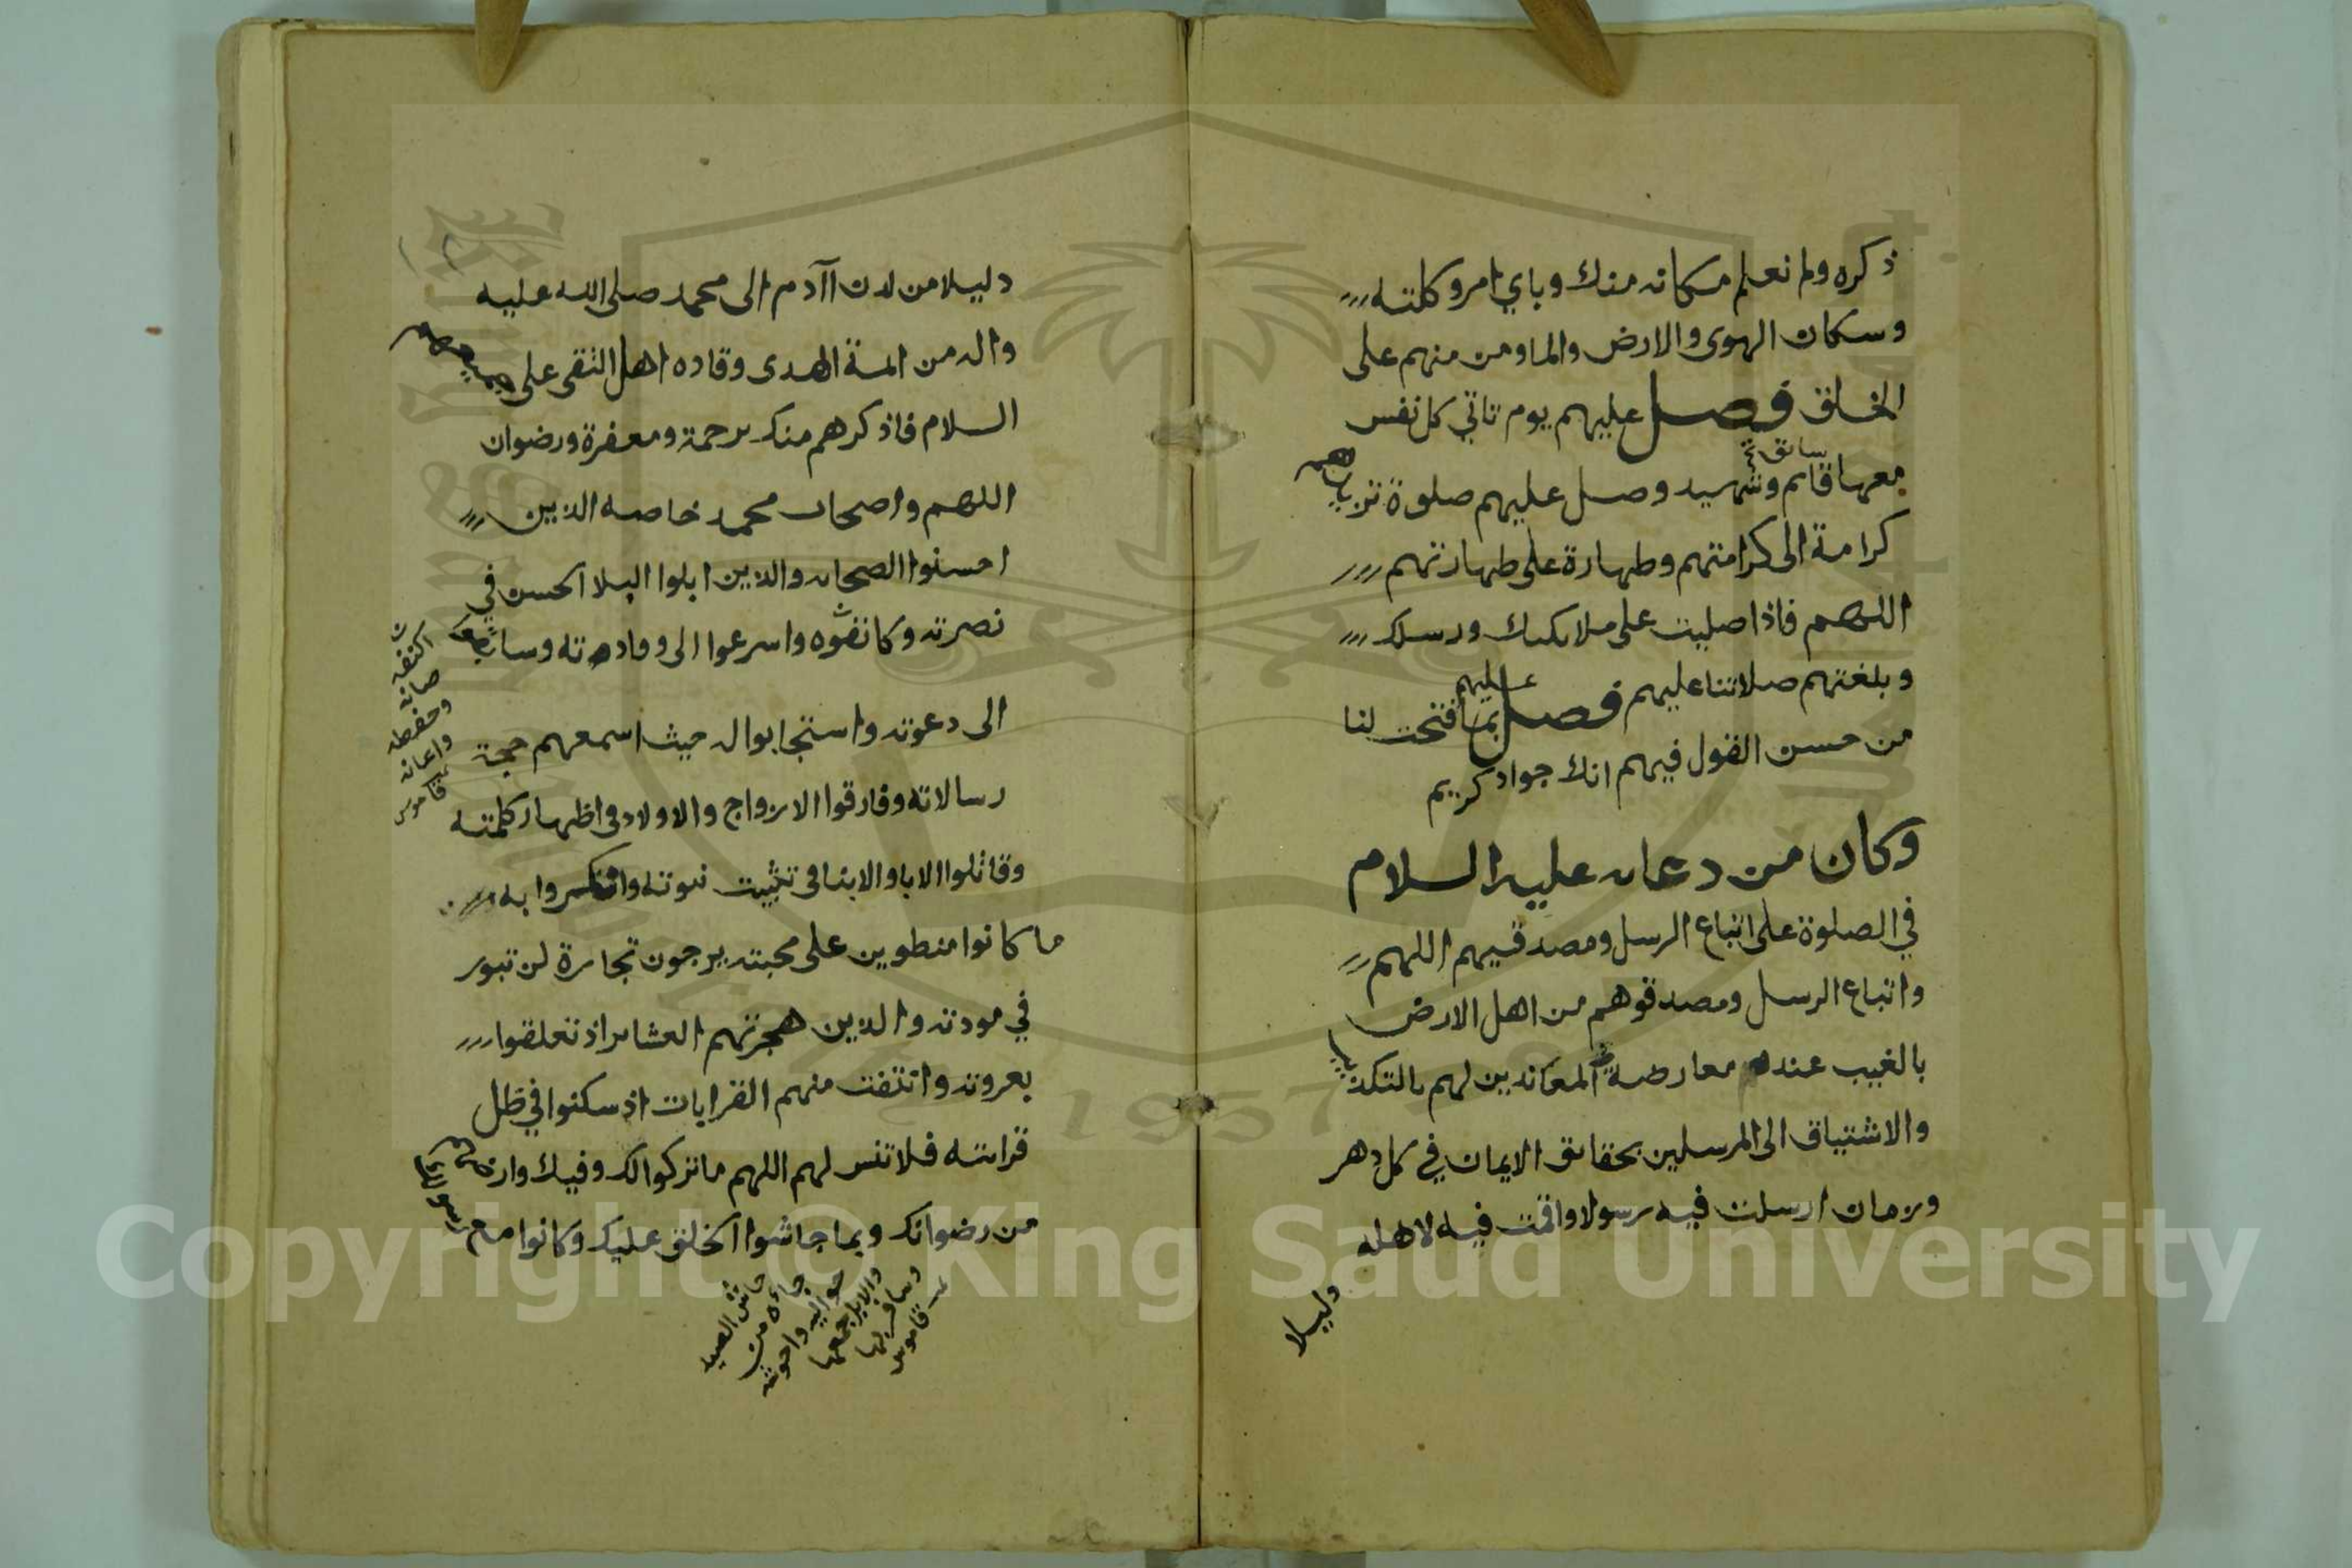 ذكره ولم نعلم مكانه منك وباي امر وكلته
وسكان الهوى والارض والما ومن منهم على
الخلق فصل عليهم يوم تاتي كل نفس
معها قايم وشهيد وصل عليهم صلوة تزيدهم
سائق
كرامة الى كرامتهم وطهارة على طهارتهم
اللهم فاذا صليت على ملايكتك ورسلك
وبلغتهم صلاتنا عليهم فصل عليهم بما فتحت لنا
من حسن القول فيهم انك جواد كريم
وكان من دعائه عليه السلام
في الصلوة على اتباع الرسل ومصدقيهم اللهم
واتباع الرسل ومصدقوهم من اهل الارض
بالغيب عند معارضة المعاندين لهم بالتكذيب
والاشتياق الى المرسلين بحقايق الايمان في كل دهر
وزمان ارسلت فيه رسولا واقمت فيه لاهله
دليلا
دليلا من لدن اآدم الى محمد صلى الله عليه
واله من ايمة الهدى وقاده اهل التقى على جميعهم
السلام فاذكرهم منك برحمة ومغفرة ورضوان
اللهم واصحاب محمد خاصه الذين
احسنوا الصحابه والذين ابلوا البلا الحسن في
نصرته وكانفوه واسرعوا الى وفادته وسابقوا
الى دعوته واستجابوا له حيث اسمعهم حجة
رسالاته وفارقوا الازواج والاولاد في اظهار كلمته
وقاتلوا الابا والابنا في تثبيت نبوته وانتصروا به
ما كانوا منطوين على محبته يرجون تجارة لن تبور
في مودته والذين هجرتهم العشاير اذ تعلقوا
بعروته وانتفت منهم القرابات اذ سكنوا في ظل
قرابته فلا تنس لهم اللهم ما تركوا لك وفيك وارضهم
من رضوانك وبما حاشوا الخلق عليك وكانوا مع رسولك
اكنفه
صانه
وحفظه
واعانه
قاموس
حاش الصيد
جاءه من
حواليه واحوشه
والابل جمعها
وسافر بها
قاموس
Copyright © King Saud University
1957